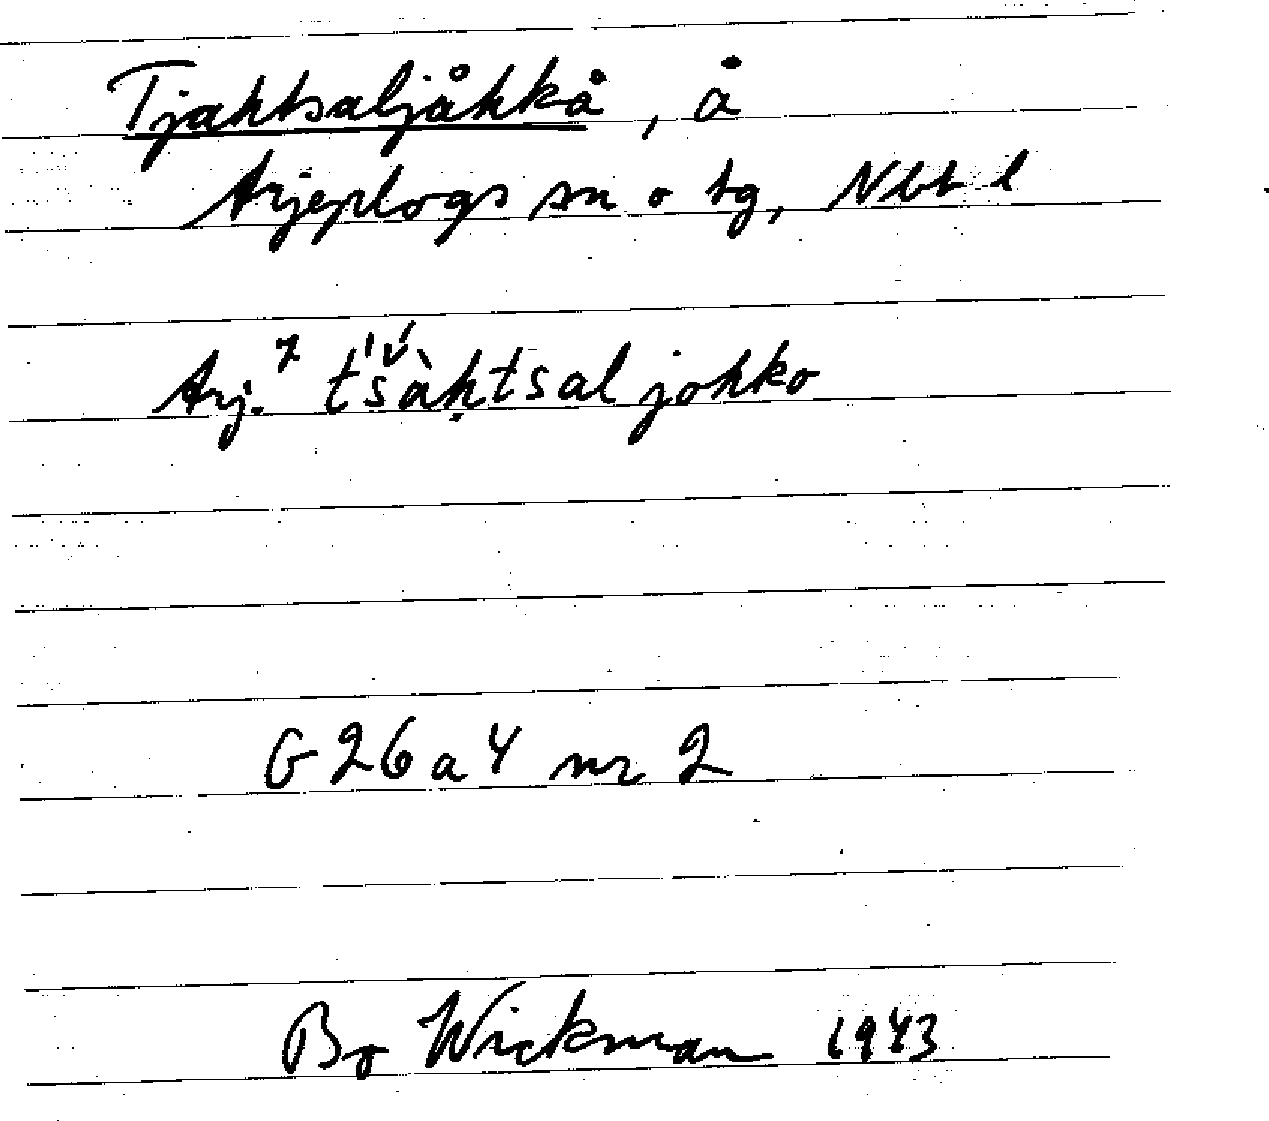 Tjahtsaljåhkå, å
Arjeplogs sn o tg, Nbt l
Arj.⁷ tšàḥtsal johko
G 26 a 4 nr 2
Bo Wickman 1943